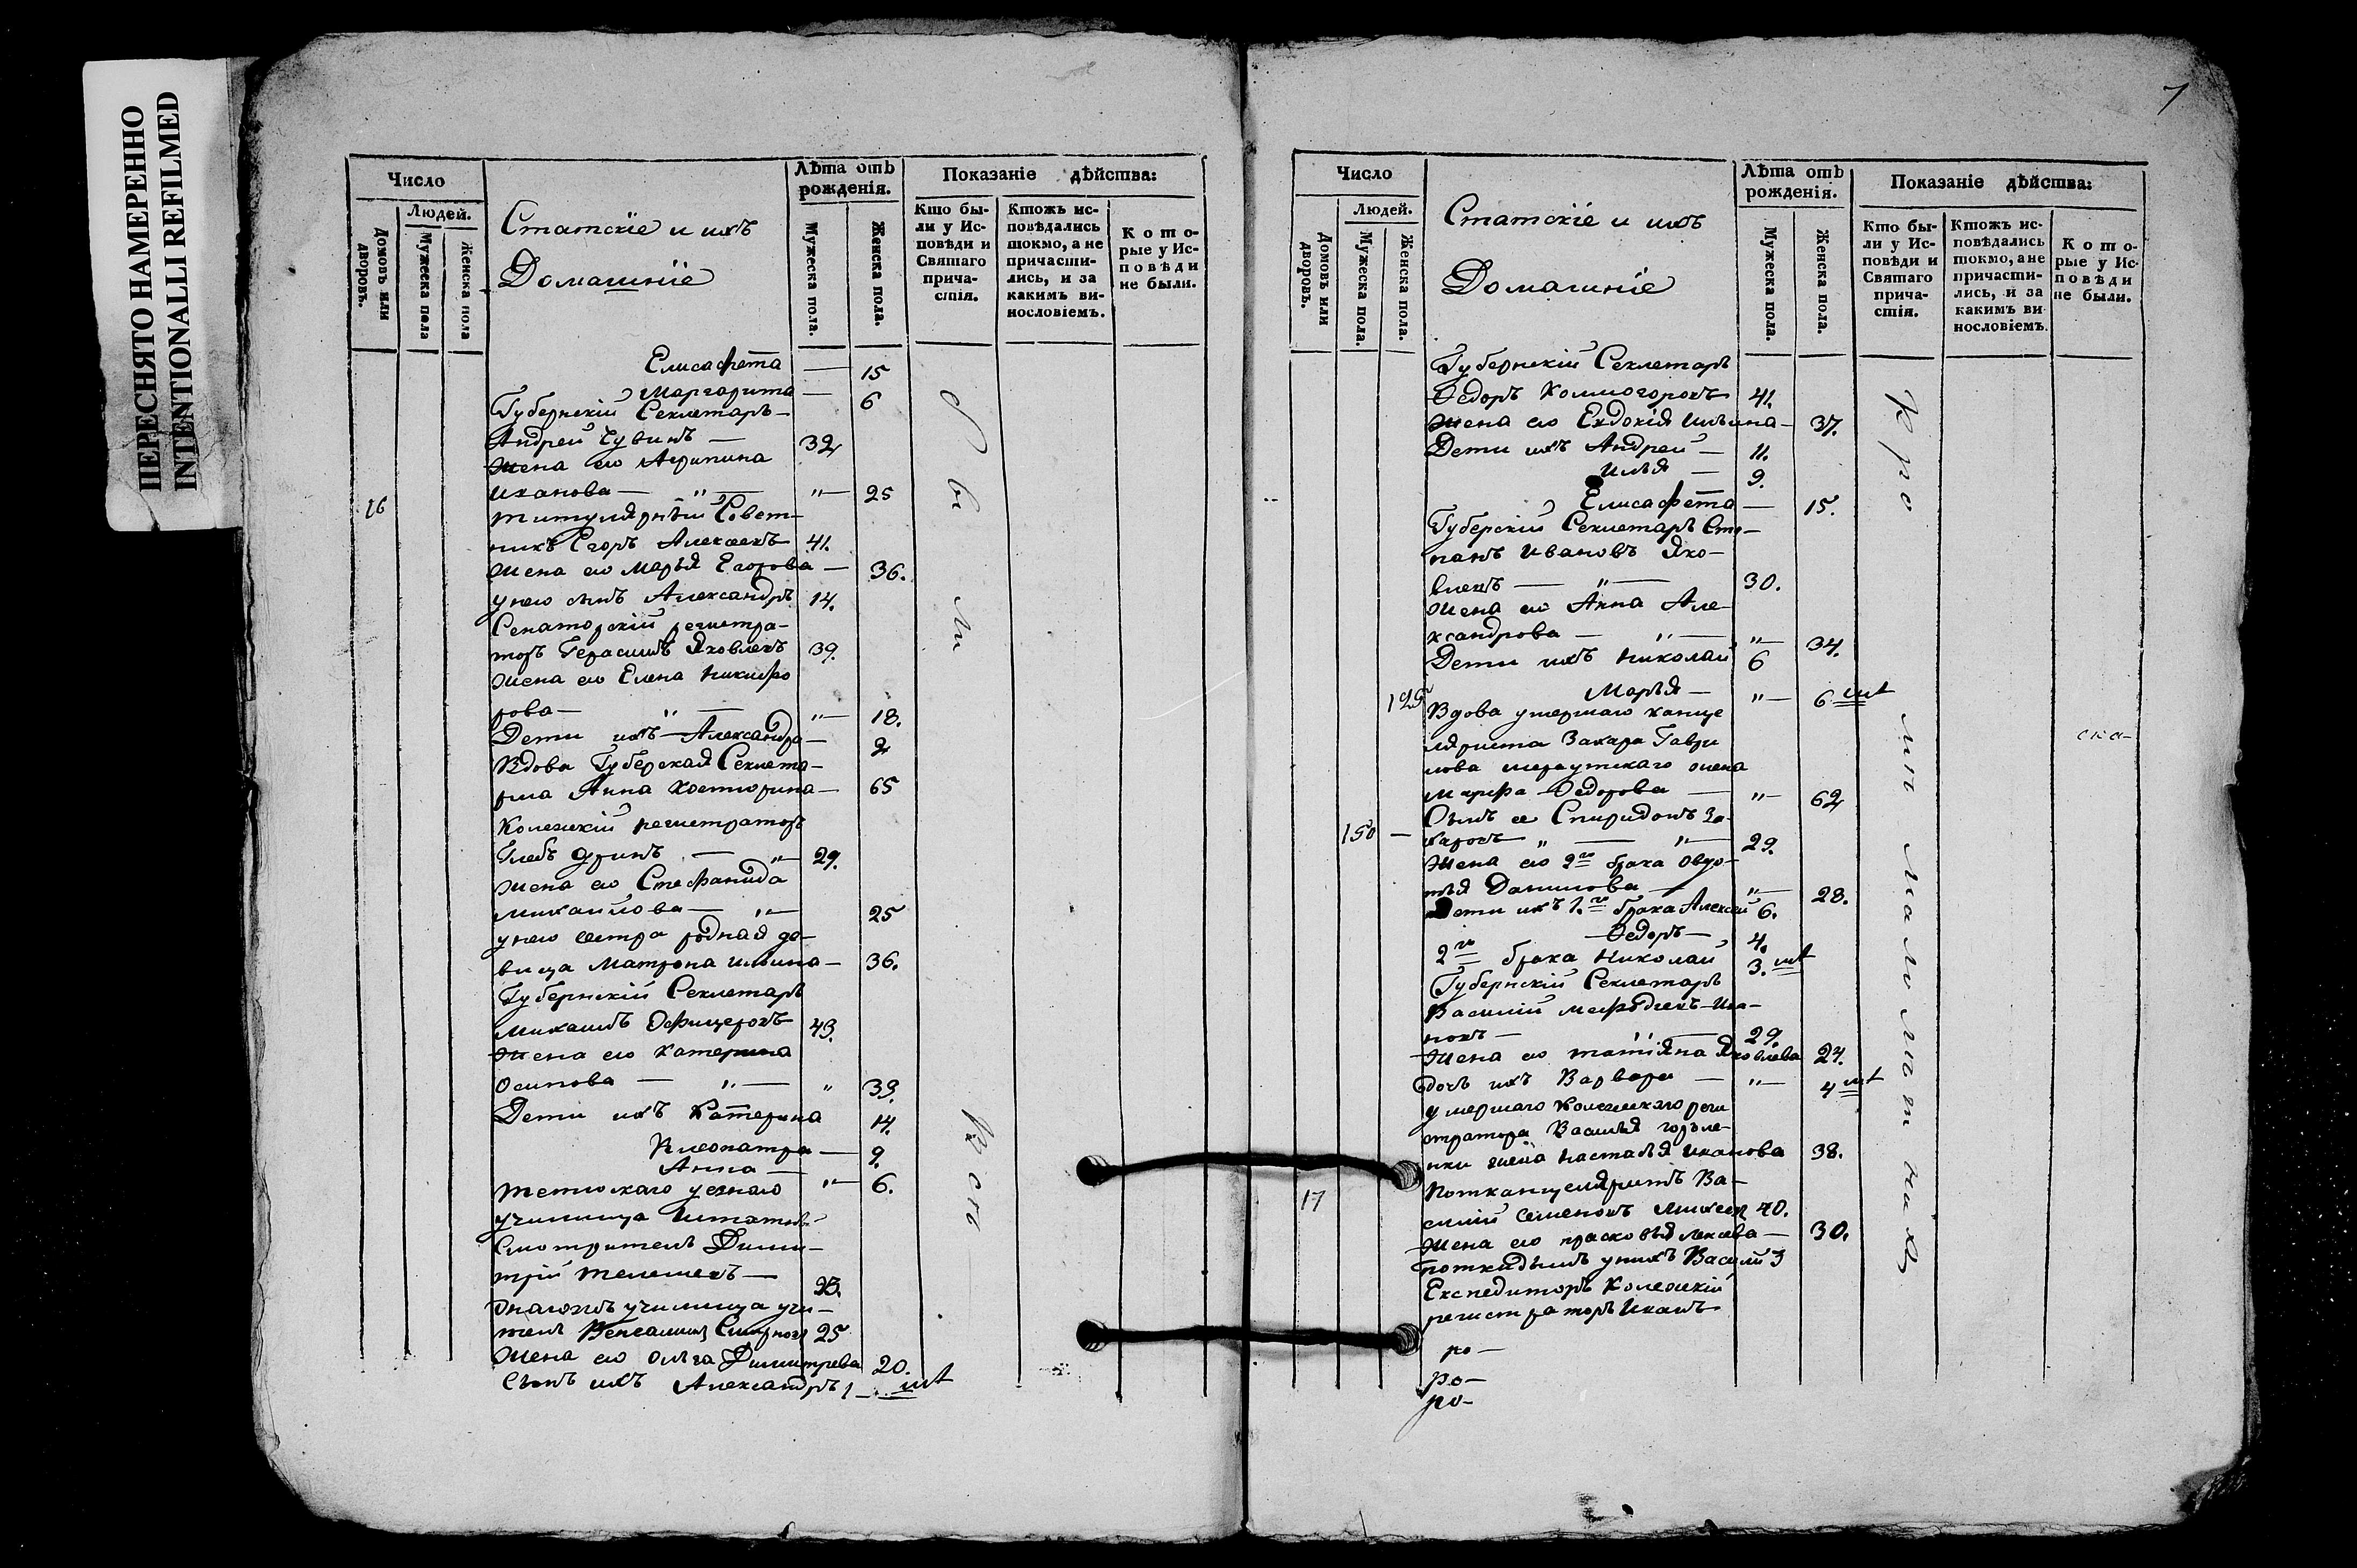 ПЕРЕСНЯТО НАМЕРЕННО
INTENTIONALLI REFILMED
Число
Людей.
Домовъ или дворовъ.
Мужеска пола
Женска пола
Статскіе и ихъ
Домашніе
Лѣта отъ рожденія.
Мужеска пола.
Женска пола.
Показаніе дѣйства:
Кто бы-
ли у Ис-
повѣди и
Святаго
прича-
стія.
Ктожъ ис-
повѣдались
токмо, а не
причасти-
лись, и за
какимъ ви-
нословіемъ.
К о т о-
рые у Ис-
п о в ѣ д и
не были.
Елисафета — 15
Маргарита — 6
Губернскій Секлетарь —
Андрей Чувинъ — 32
Жена его Агрипина
Иванова — " — " — 25
16
титулярный Совет-
никъ Егоръ Алексеевъ 41.
Жена его Марья Егорова — 36.
у него сынъ Александръ 14.
Сенаторскій регистра-
торъ Герасимъ Яковлевъ 39.
Жена его Елена Никифо
рова — " — " — 18.
Дети ихъ Александра — 2
Вдова Губерская Секлета-
рша Анна Костюрина — 65
Колежскій регистраторъ
Глебъ — " — 29.
Жена его Стефанида
михайлова — " — 25
у него сестра родная де-
вица Матрона Ильина — 36.
Губернскій Секлетарь
михаилъ Офицеровъ 43.
Жена его Катерина
Осипова — " — " 39.
Дети ихъ Катерина 14.
Клеопатра — 9.
Анна — " — 6.
училища Штатный
Смотритель Дими-
трій Телешевъ —
училища учи-
тель Венеаминъ Смирновъ 25
Жена его Ольга Димитрева 20.
Сынъ ихъ Александръ 1 —
бы
ли
7
Число
Людей.
Домовъ или дворовъ.
Мужеска пола.
Женска пола.
Статскіе и ихъ
Домашніе
Лѣта отъ рожденія.
Мужеска пола.
Женска пола.
Показаніе дѣйства:
Кто бы-
ли у Ис-
повѣди и
Святаго
прича-
стія.
Ктожъ ис-
повѣдались
токмо, а не
причасти-
лись, и за
какимъ ви-
нословіемъ.
К о т о-
рые у Ис-
п о в ѣ д и
не были.
Губернскій Секлетарь
Федоръ Холмогоровъ 41.
Жена его Евдокія Ильина — 37.
Дети ихъ Андрей — 11.
Илья — 9.
Елисафета — 15.
Губерскій Секлетарь Сте-
панъ Ивановъ Яко-
влевъ — " — 30.
Жена его Анна Але-
ксандрова — " — " — 34.
Дети ихъ Николай 6
125
Марья — " — 6
Вдова умершаго канце
ляриста Захара Гаври
лова жена
Марфа Федорова — " — 62
Сынъ ее Спиридонъ За-
150 —
харовъ " — " — 29.
Жена его 2го брака Овдо-
тья Данилова — " — 28.
Дети ихъ 1.го брака Алексей 6.
Федоръ — 4.
2го брака Николай 3.
Губернскій Секлетарь
Василій Мефодіевъ Ива-
новъ — " — 29.
Жена его татіяна Яковлева 24.
дочь ихъ Варвара — " — 4
умершаго Колежскаго реги
стратора Василья
жена Насталья Иванова 38.
17
Потканцеляристъ Ва-
силій Семеновъ 40.
Жена его прасковья — 30.
поткидышъ у нихъ Василій 3
Експедиторъ Колежскій
регистраторъ Иванъ
ро —
ро —
ро —
кро
мѣ малолѣтнихъ
ска-